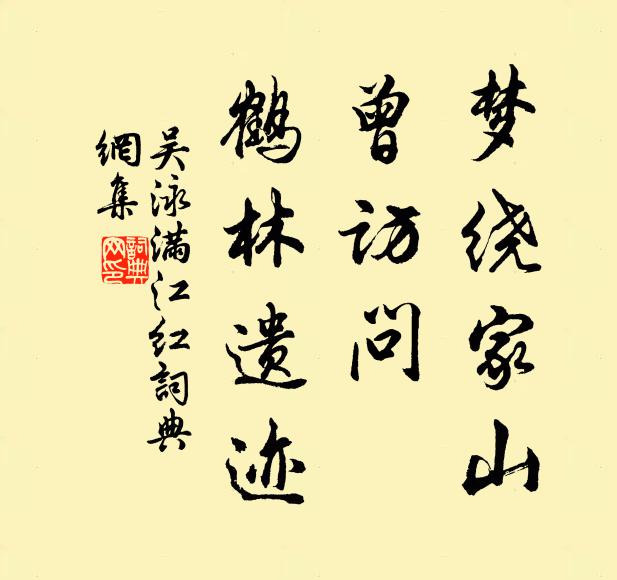 梦绕家山
曾访问
鹤林遗迹
吴泳满江红詞典
網集
詞典
网印